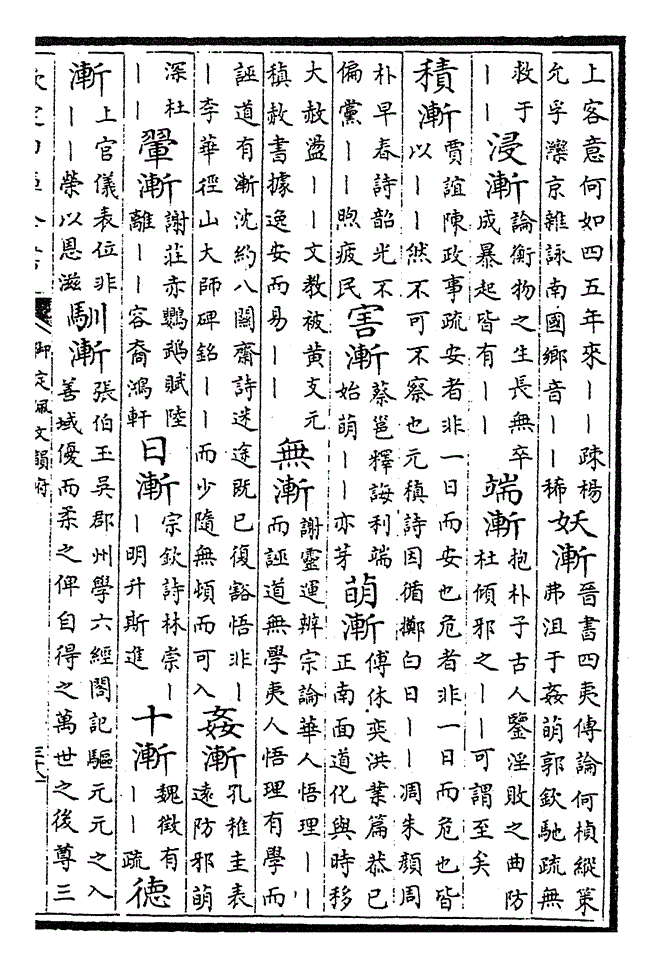 上客意何如四五年來｜｜疎楊
允孚灤京雜詠南國鄉音｜｜稀
妖漸
晉書四夷傳論何楨縱策
弗沮于姦萌郭欽馳疏無
救于
｜｜
浸漸
論衡物之生長無卒
成暴起皆有｜｜
端漸
抱朴子古人鑒淫敗之曲防
杜傾邪之｜｜可謂至矣
積漸
賈誼陳政事疏安者非一日而安也危者非一日而危也皆
以｜｜然不可不察也元稹詩因循擲白日｜｜凋朱顔周
朴早春詩韶光不
偏黨｜｜煦疲民
害漸
蔡邕釋誨利端
始萌｜｜亦芽
萌漸
傅休奕洪業篇恭己
正南面道化與時移
大赦盪｜｜文教被黄支元
稹赦書據逸安而易｜｜
無漸
謝靈運辨宗論華人悟理｜｜
而誣道無學夷人悟理有學而
誣道有漸沈約八關齋詩迷途既已復豁悟非｜
｜李華徑山大師碑銘｜｜而少隨無頓而可入
姦漸
孔稚圭表
遠防邪萌
深杜
｜｜
翬漸
謝莊赤鸚鵡賦陸
離｜｜容裔鴻軒
日漸
宗欽詩林崇｜
｜明升斯進
十漸
魏徵有
｜｜疏
德
漸
上官儀表位非
｜｜榮以恩滋
馴漸
張伯玉吳郡州學六經閣記驅元元之入
善域優而柔之俾自得之萬世之後尊三
欽定四庫全書
御定佩文韻府